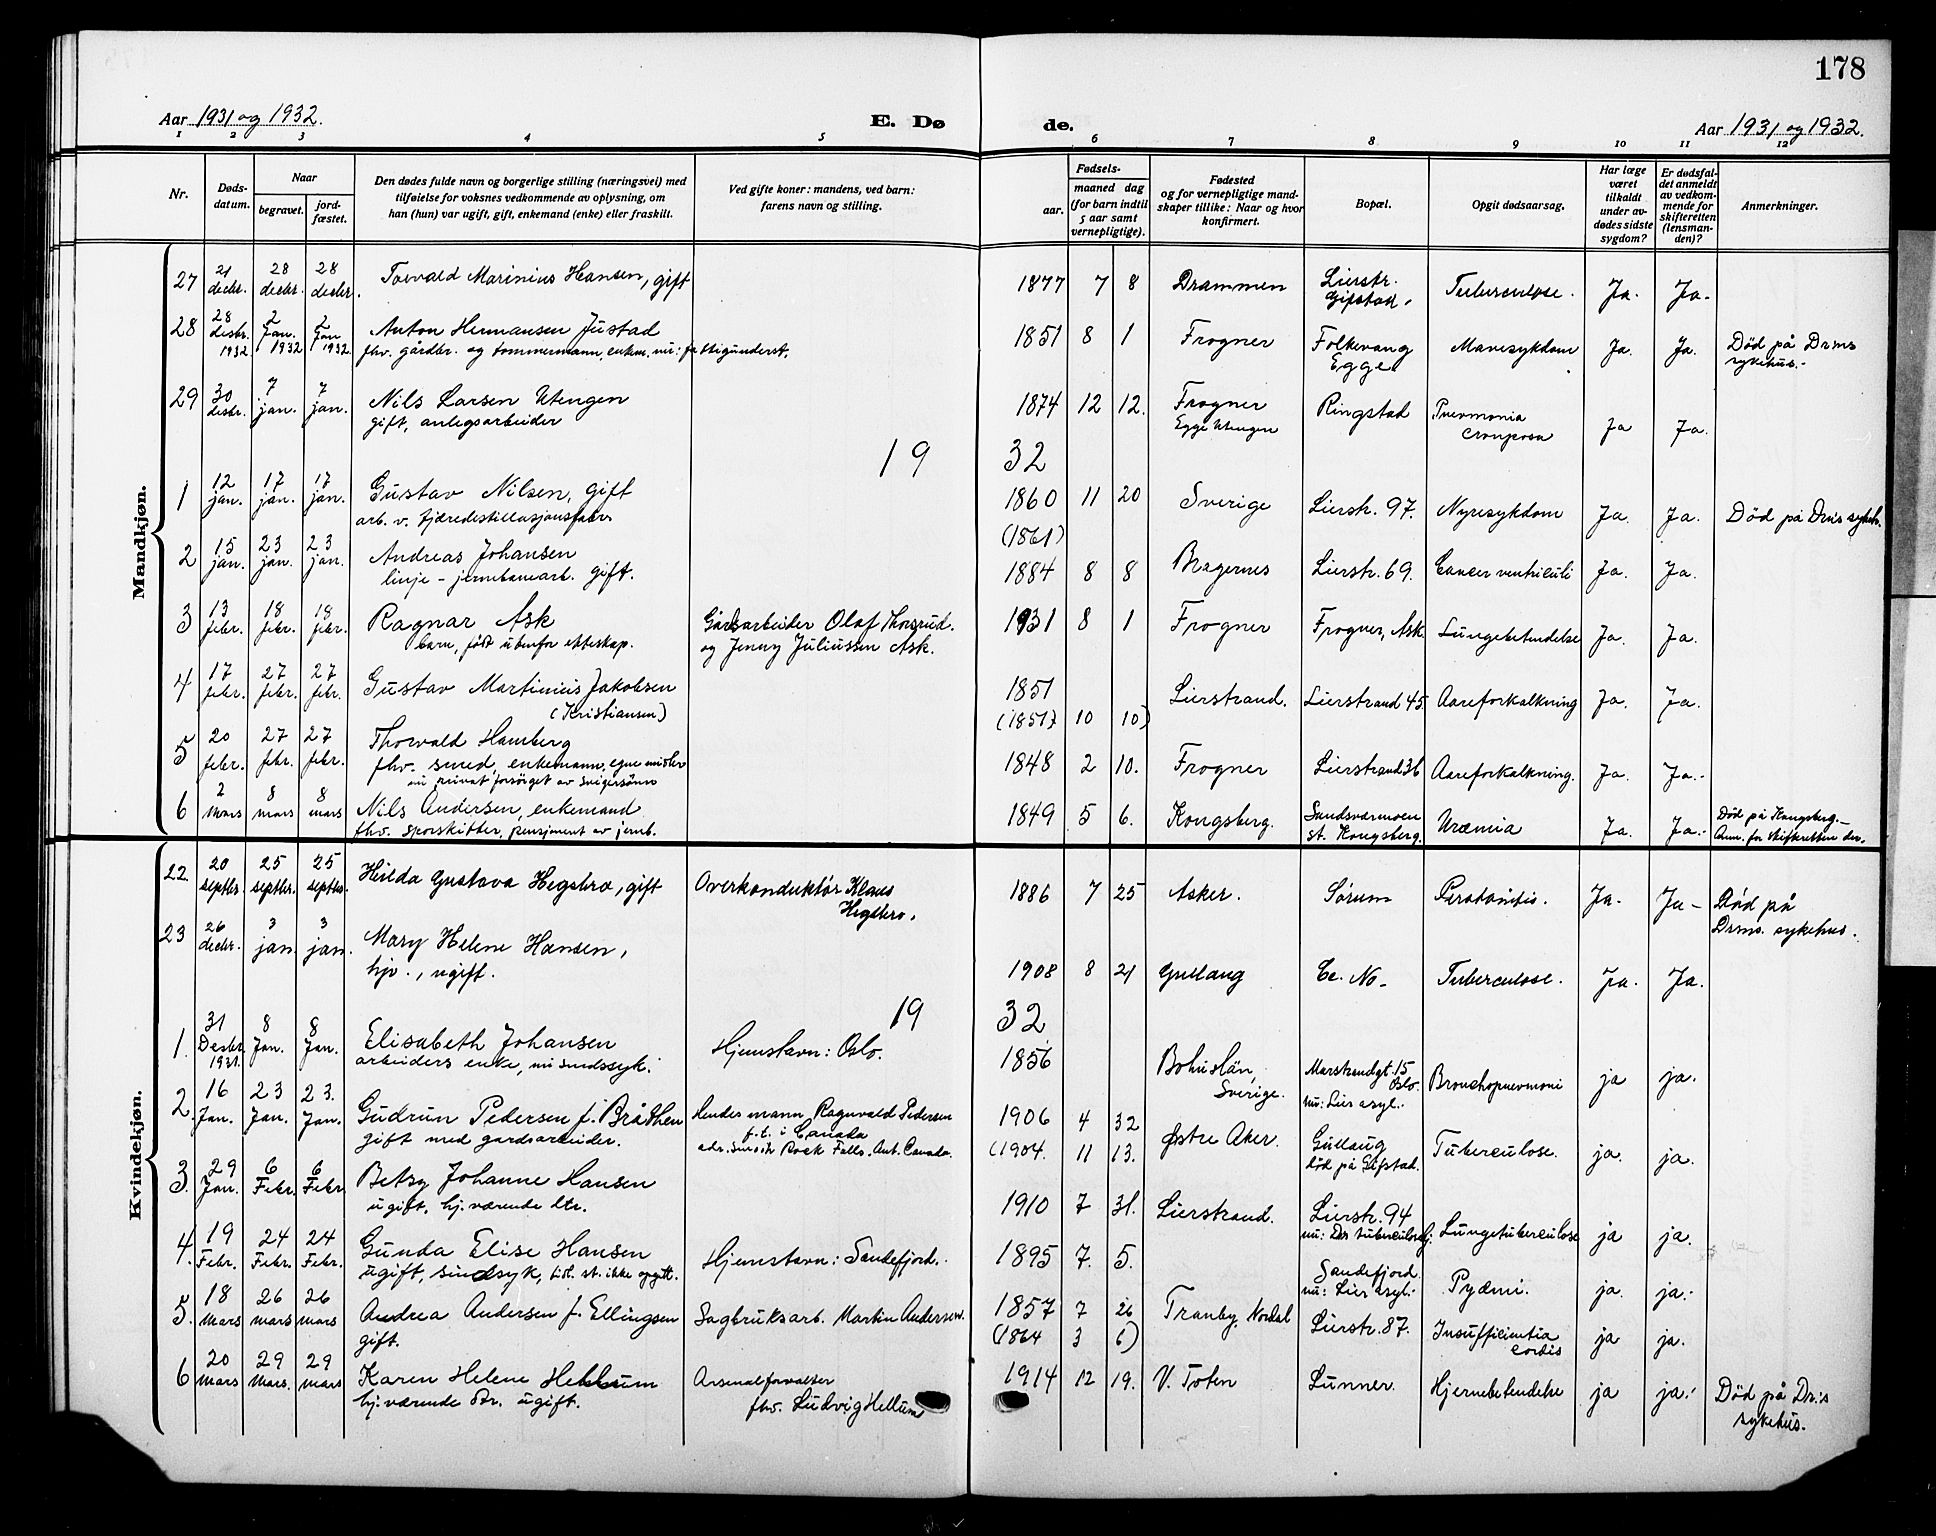 178
Aar 1931 og 1932.
E. Dø
de.
Aar 1931 og 1932.
1 2 3 4 5 6 7 8 9 10 11 12
Nr.
Døds-
datum.
Naar
begravet.
jord-
fæstet.
Den dødes fulde navn og borgerlige stilling (næringsvei) med
tilføielse for voksnes vedkommende av oplysning, om
han (hun) var ugift, gift, enkemand (enke) eller fraskilt.
Ved gifte koner: mandens, ved barn:
farens navn og stilling.
Fødsels-
aar.
maaned dag
(for barn indtil
5 aar samt
vernepligtige).
Fødested
og for vernepligtige mand-
skaper tillike: Naar og hvor
konfirmert.
Bopæl.
Opgit dødsaarsag.
Har læge
været
tilkaldt
under av-
dødes sidste
sygdom?
Er dødsfal-
det anmeldt
av vedkom-
mende for
skifteretten
(lensman-
den)?
Anmerkninger.
Mandkjøn.
27 21 decbr. 28 decbr. 28 decbr. Torvald Marinius Hansen, gift 1877 7 8 Drammen Lierstr. Gifstad. Tuberculose. Ja. Ja.
28 28 desbr. 1932 2 Jan. 1932 2 Jan 1932 Anton Hermansen Justad 1851 8 1 Frogner Folkevang Egge Mavesykdom Ja. Ja. Død på Drms sykehus.
fhv. gårdbr. og tømmermann, enkem. nu: fattigunderst.
29 30 desbr. 7 jan. 7 jan. Nils Larsen Utengen 1874 12 12. Frogner Egge Utengen Ringstad Pneumonia crouposa Ja Ja.
gift, anlegsarbeider
19 32
1 12 jan. 17 jan. 17 jan. Gustav Nilsen, gift 1860 11 20 Sverige Lierstr. 97. Nyresykdom Ja. Ja. Død på Drms sykeh.
arb. v. tjæredestillasjonsfabr. (1861)
2 15 jan. 23 jan. 23 jan. Andreas Johansen 1884 8 8 Bragernes Lierstr. 69. Cancer ventriculi Ja. Ja.
linje - jernbanearb. gift.
3 13 febr. 18 febr. 18 febr. Ragnar Ask Gårdsarbeider Olaf Thorsrud. 1931 8 1 Frogner Frogner, Ask. Lungebetendelse Ja. Ja.
barn, født utenfor ekteskap. og Jenny Juliussen Ask.
4 17 febr. 27 febr. 27 febr. Gustav Martinius Jakobsen 1851 Lierstrand. Lierstrand 45 Aareforkalkning Ja. Ja.
(Kristiansen) (1851) 10 10)
5 20 febr. 27 febr. 27 febr. Thorvald Hamberg 1848 2 10. Frogner Lierstrand 36 Aareforkalkning. Ja. Ja.
fhv. smed, enkemann, egne midler
nu privat forsørget av svigersønn
6 2 mars 8 mars 8 mars Nils Andersen, enkemand 1849 5 6. Kongsberg. Sandsværmoen st. Kongsberg. Uræmia Ja. Ja. Død på Kongsberg.
fhv. sporskifter, pensjonert av jernb. Anm. for skifteretten der.
Kvindekjøn.
22. 20 septbr. 25 septbr. 25 septbr. Hilda Gustava Hegsbro, gift Overkonduktør Klaus Hegsbro. 1886 7 25 Asker. Sørum Ja. Ja Død på Drms. sykehus.
23 26 decbr. 3 jan. 3 jan. Mary Helene Hansen, 1908 8 21 Gullaug Tuberculose. Ja. Ja.
hjv., ugift.
19 32
1. 31 Desbr. 1931. 8 Jan. 8 Jan. Elisabeth Johansen Hjemstavn: Oslo. 1856 Bohuslän, Sverige. Marstrandgt. 15 Oslo. nu: Lier asyl. Bronchopneumoni ja ja.
arbeiders enke, nu sindssyk.
2. 16 Jan. 23 Jan. 23. Jan. Gudrun Pedersen f. Bråthen Hendes mann, Ragnvald Pedersen 1906 4 32 Østre Aker. Gullaug død på Gifstad. Tuberculose. ja. ja.
gift med gårdsarbeider. f.t. i Canada (1904. 11 13.
adr. Smooth Rock Falls. Ont. Canada.
3. 29 Jan. 6 Febr. 6 Febr. Betsy Johanne Hansen 1910 7 31. Lierstrand. Lierstr. 94 Lungetuberculose ja ja.
ugift, hj. værende dtr.
4. 19 Febr. 24 Febr. 24 Febr. Gunda Elise Hansen Hjemstavn: Sandefjord. 1895 7. 5. Sandefjord nu: Lier asyl. Pyæmi. ja. ja.
ugift, sindssyk, tidl. st. ikke opgitt.
5. 18 mars 26 mars 26 mars Andrea Andersen f. Ellingsen Sagbruksarb. Martin Andersen. 1857 7 26 Tranby, Nordal Lierstr. 87. Insufficientia cordis ja ja.
gift. (1864 3 6)
6 20 mars 29 Mars. 29 mars Karen Helene Hellum Arsenalforvalter 1914 12 19. V. Toten Lunner. Hjernebetendelse ja ja. Død på Dr:s sykehus.
hj. værende dtr. ugift. fhv. Ludvig Hellum